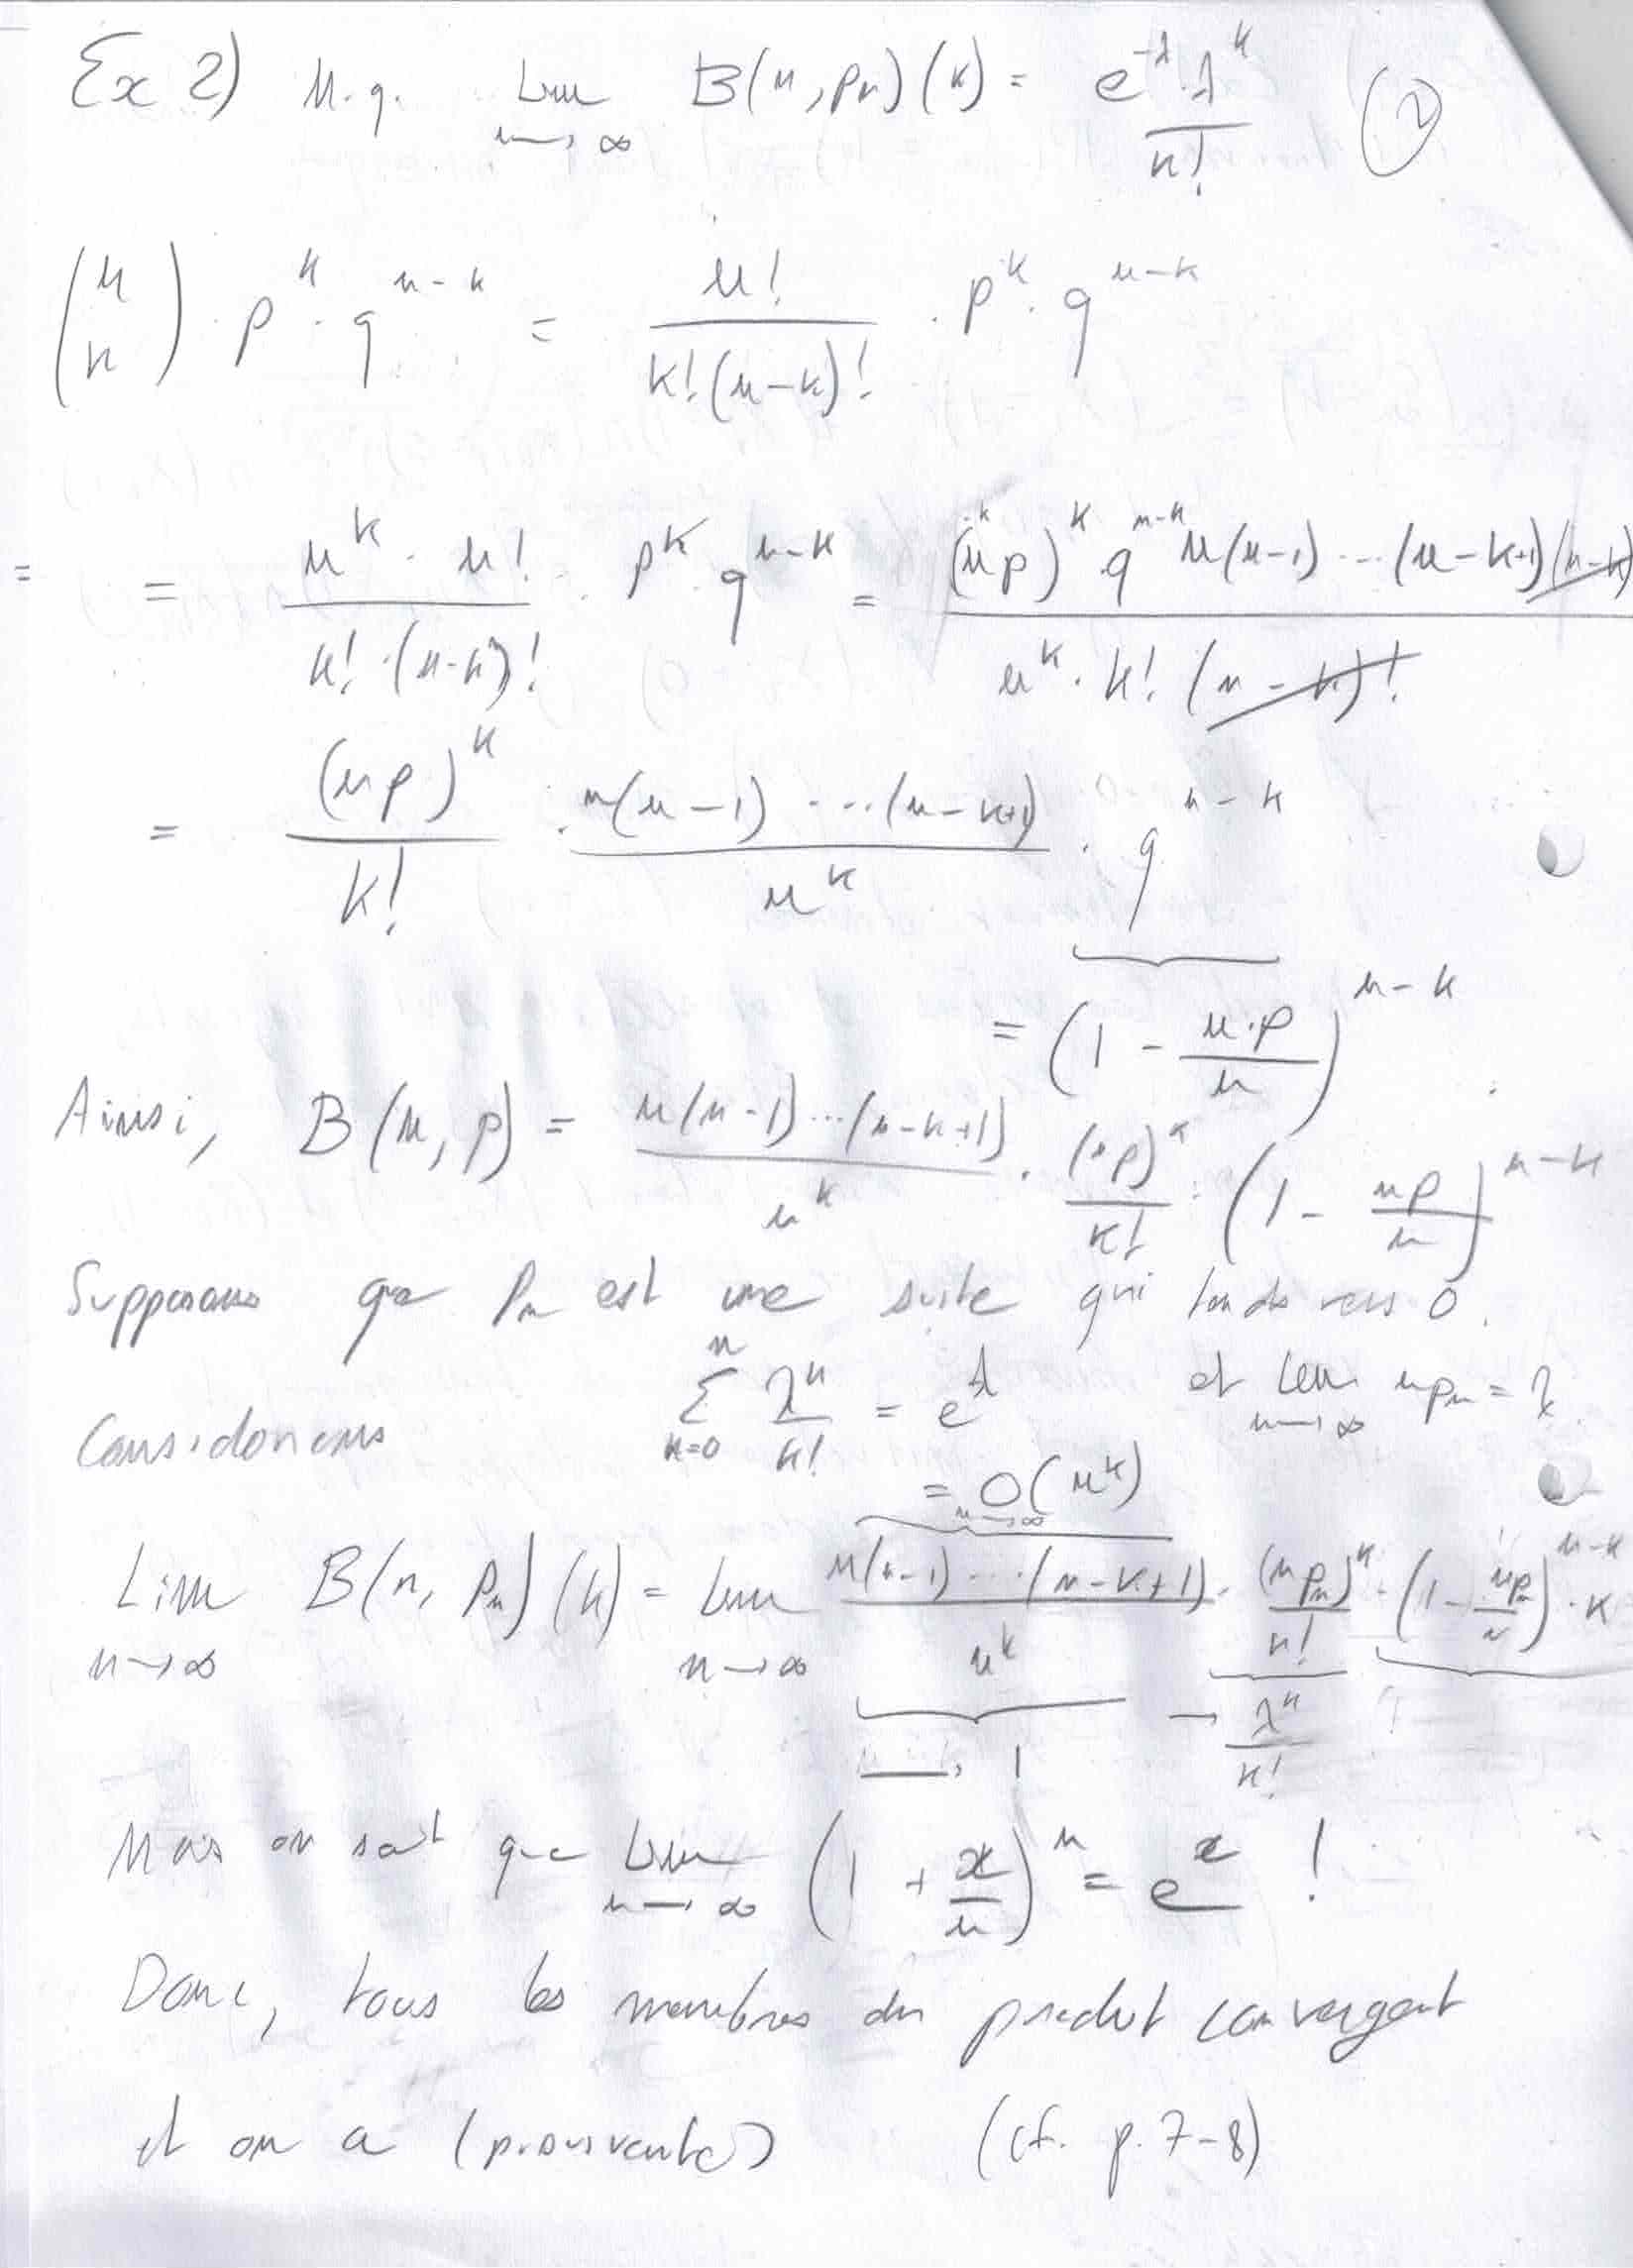 Ex 2) M.q. Lim n→∞ B(n, pn)(k) = e^-λ · λ^k / k! (2)
(n k) · p^k · q^n-k = n! / k!(n-k)! · p^k · q^n-k
= = n^k · n! / k! · (n-k)! · p^k q^n-k = (np)^k q^n-k n(n-1) ... (n-k+1)(n-k) / n^k · k! (n-k)!
= (np)^k / k! · n(n-1) ... (n-k+1) / n^k · q^n-k
= (1 - n·p / n)^n-k
Ainsi, B(n, p) = n(n-1)...(n-k+1) / n^k · (np)^k / k! · (1 - np / n)^n-k
Supposons que pn est une suite qui tends vers 0.
et lim n→∞ npn = λ
Considérons n Σ k=0 λ^k / k! = e^λ
= n→∞ O(n^k)
Lim n→∞ B(n, pn)(k) = Lim n→∞ n(n-1) ... (n-k+1) / n^k · (npn)^k / k! · (1 - npn / n)^n-k · k
→ 1 → λ^k / k!
Mais on sait que Lim n→∞ (1 + x / n)^n = e^x !
Donc, tous les membres du produit convergent
et on a (page suivante) (cf. p. 7-8)